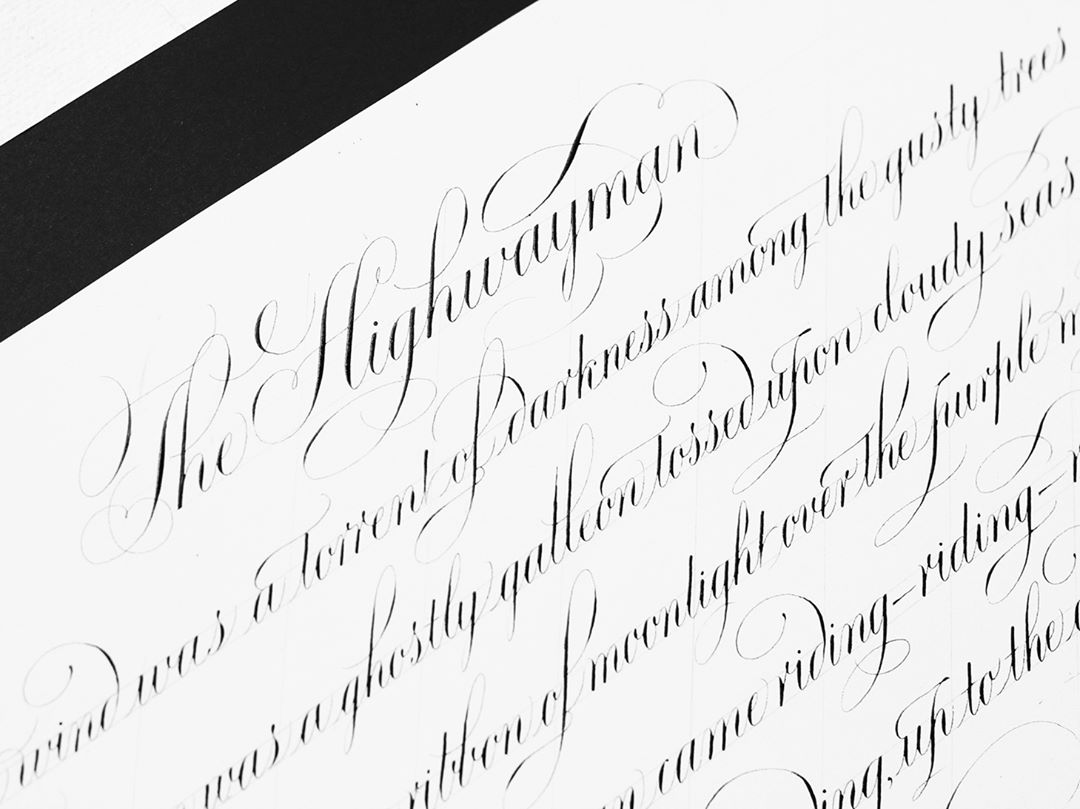 The Highwayman
wind was a torrent of darkness among the gusty trees
was a ghostly galleon tossed upon cloudy seas
ribbon of moonlight over the purple m
came riding—riding—r
ing, up to the